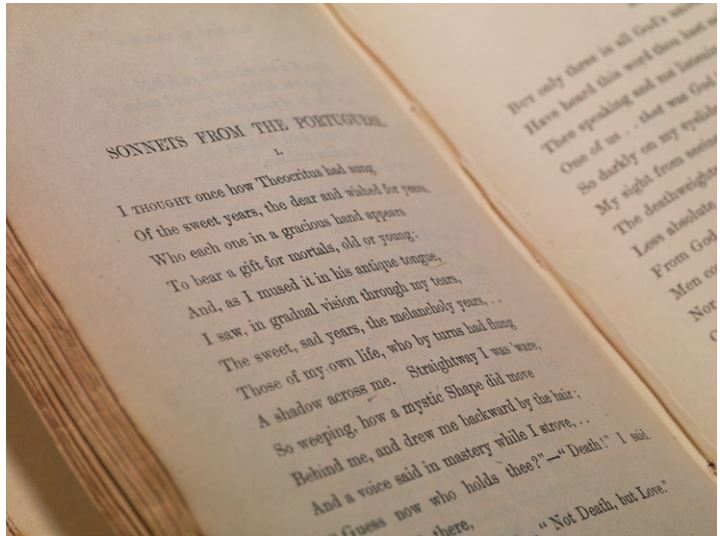 SONNETS FROM THE PORTUGUESE.
I.
I THOUGHT once how Theocritus had sung
Of the sweet years, the dear and wished for years,
Who each one in a gracious hand appears
To bear a gift for mortals, old or young:
And, as I mused it in his antique tongue,
I saw, in gradual vision through my tears,
The sweet, sad years, the melancholy years, . .
Those of my own life, who by turns had flung
A shadow across me. Straightway I was 'ware,
So weeping, how a mystic Shape did move
Behind me, and drew me backward by the hair;
And a voice said in mastery while I strove, . .
"Guess now who holds thee?"—"Death!" I said.
there,
"Not Death, but Love."
BUT only three in all God's
Have heard this word thou hast
Thee speaking and me listening
One of us . . that was God,
So darkly on my eyelids
My sight from seeing
The deathweights
Less absolute
From God
Men
Nor